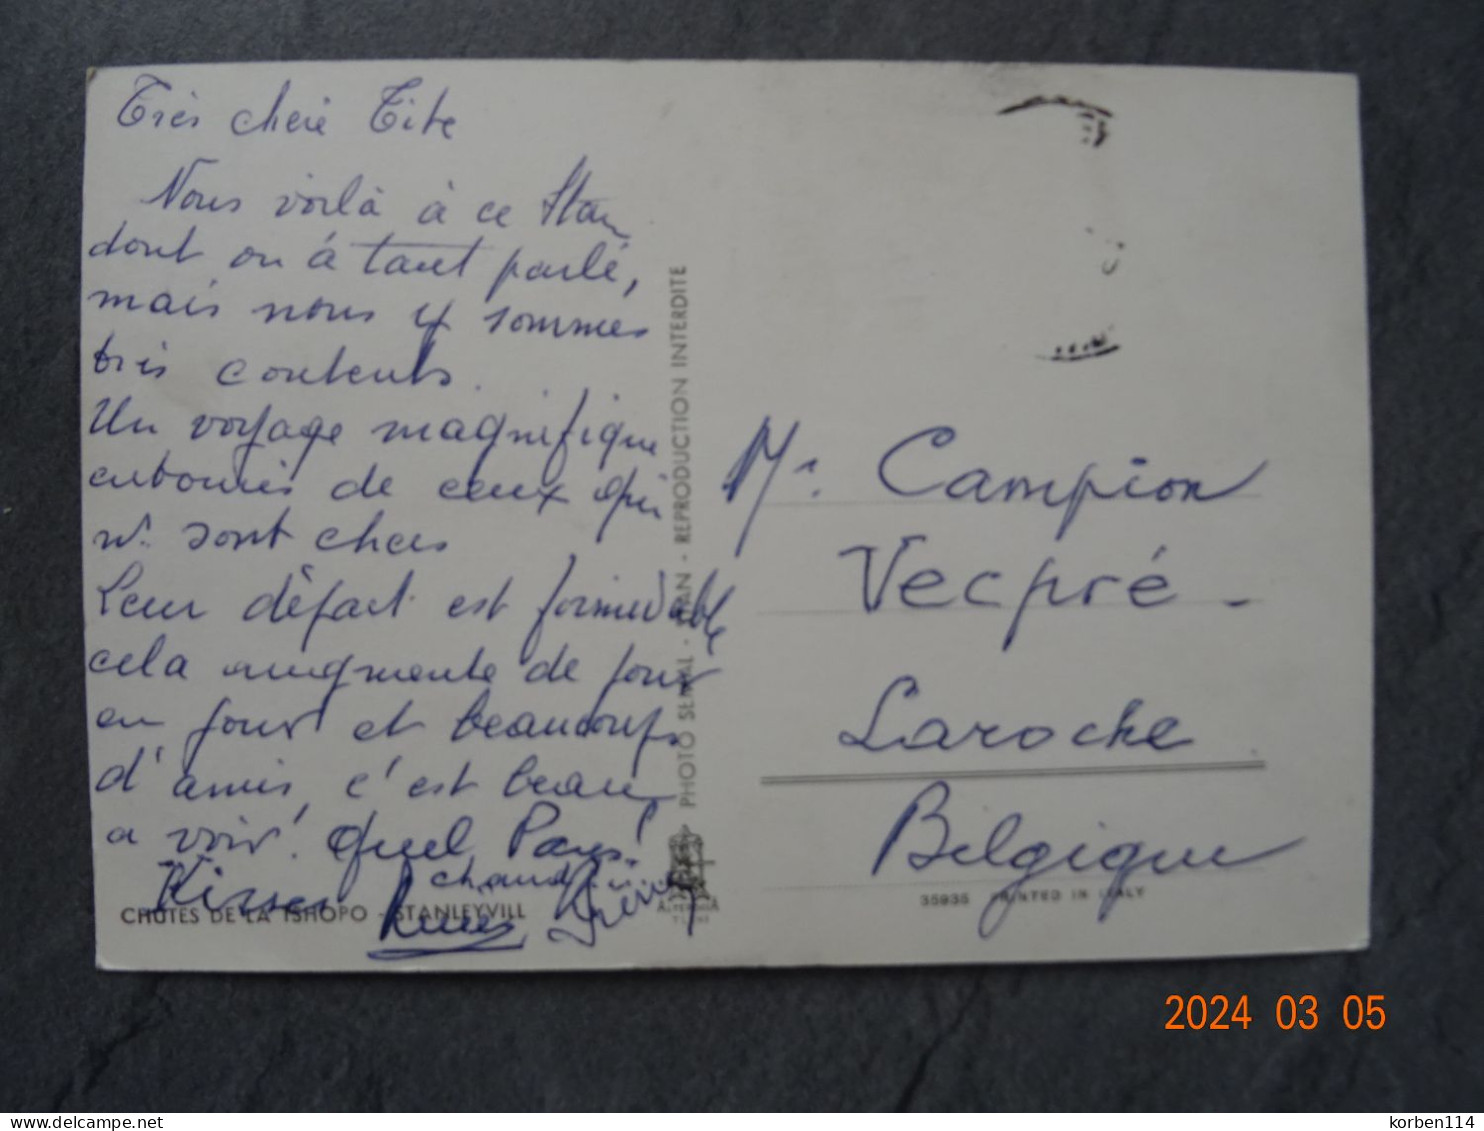 Très chère Tite
Nous voilà à ce Stan
dont on à tant parlé,
mais nous y sommes
très contents.
Un voyage magnifique
entourés de ceux qui
n. sont chers
Leur départ est formidable
cela augmente de jour
en jour et beaucoup
d'amis, c'est beau
a voir! Quel Pays!
chaud
Kisses
CHUTES DE LA TSHOPO - STANLEYVILL
PHOTO SERVAL - STAN - REPRODUCTION INTERDITE
Mr. Campion
Vecpré -
Laroche
Belgique
35935 PRINTED IN ITALY
2024 03 05
delcampe.net
korben114